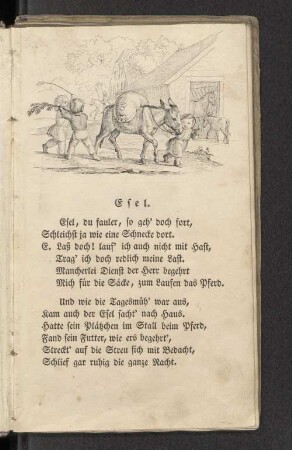 Esel.
Esel, du fauler, so geh' doch fort,
Schleichst ja wie eine Schnecke dort.
E. Laß doch! lauf' ich auch nicht mit Hast,
Trag' ich doch redlich meine Last.
Mancherlei Dienst der Herr begehrt
Mich für die Säcke, zum Laufen das Pferd.
Und wie die Tagesmüh' war aus,
Kam auch der Esel sacht' nach Haus.
Hatte sein Plätzchen im Stall beim Pferd,
Fand sein Futter, wie ers begehrt',
Streckt' auf die Streu sich mit Bedacht,
Schlief gar ruhig die ganze Nacht.